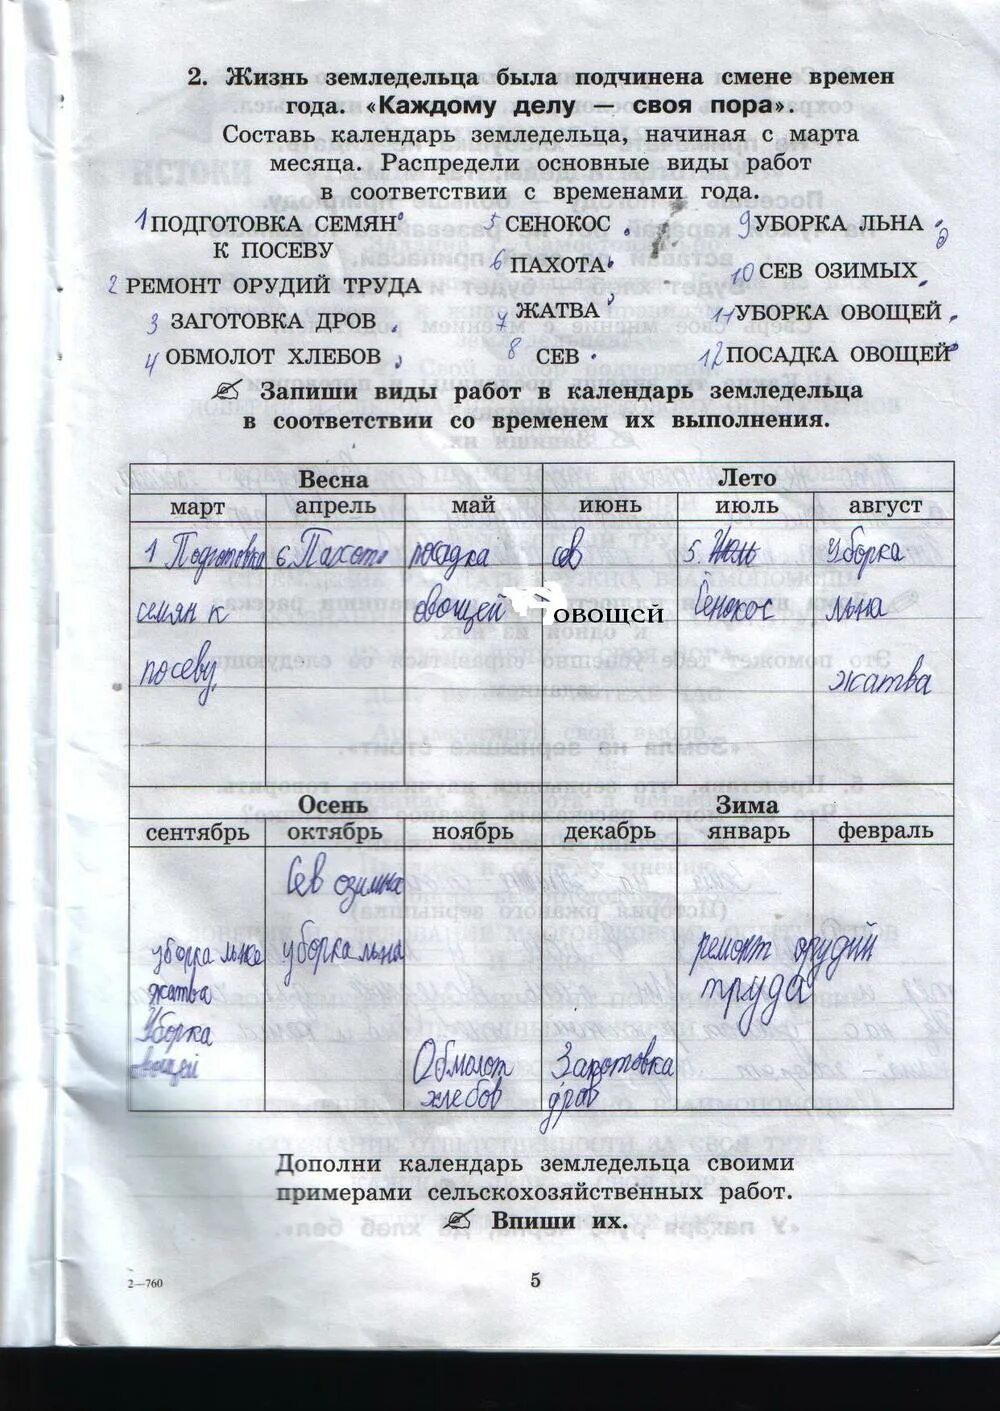 2. Жизнь земледельца была подчинена смене времен
года. «Каждому делу — своя пора».
Составь календарь земледельца, начиная с марта
месяца. Распредели основные виды работ
в соответствии с временами года.
1 ПОДГОТОВКА СЕМЯН
К ПОСЕВУ
2 РЕМОНТ ОРУДИЙ ТРУДА
3 ЗАГОТОВКА ДРОВ
4 ОБМОЛОТ ХЛЕБОВ
5 СЕНОКОС
6 ПАХОТА
7 ЖАТВА
8 СЕВ
9 УБОРКА ЛЬНА
10 СЕВ ОЗИМЫХ
11 УБОРКА ОВОЩЕЙ
12 ПОСАДКА ОВОЩЕЙ
Запиши виды работ в календарь земледельца
в соответствии со временем их выполнения.
Весна Лето
март апрель май июнь июль август
1 Подготовка 6. Пахота посадка сев 5. Июль Уборка
семян к овощей овощей Сенокос льна
посеву жатва
Осень Зима
сентябрь октябрь ноябрь декабрь январь февраль
Сев озимна
уборка льна уборка льна ремонт орудий
жатва труда
Уборка
овощей Обмолот Заготовка
хлебов дров
Дополни календарь земледельца своими
примерами сельскохозяйственных работ.
Впиши их.
2—760
5